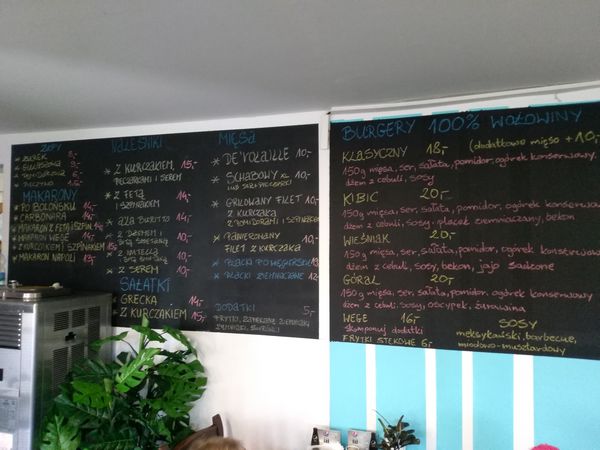 ZUPY
* ŻUREK
MAKARONY
* PO BOLOŃSKU 14,-
* CARBONARA 14,-
* MAKARON Z FETĄ I SZPIN.
* MAKARON WEGE
* Z KURCZAKIEM I SZPINAKIEM 15,-
* MAKARON NAPOLI 13,-
NALEŚNIKI
* Z KURCZAKIEM, 15,-
PIECZARKAMI I SEREM
* Z FETĄ 14,-
I SZPINAKIEM
* A'LA BURITTO 14,-
* Z DŻEMEM I 10,-
BITĄ ŚMIETANĄ
* Z NUTELLĄ 10,-
* Z SEREM 10,-
SAŁATKI
* GRECKA 14,-
* Z KURCZAKIEM 15,-
MIĘSA
* DE'VOLAILLE 10,-
* SCHABOWY XL 10,-
* GRILOWANY FILET 10,-
Z KURCZAKA
Z POMIDORAMI I SZPINAKIEM
* PANIEROWANY 10,-
FILET Z KURCZAKA
* PLACKI PO WĘGIERSKU
* PLACKI ZIEMNIACZANE
DODATKI 5,-
BURGERY 100% WOŁOWINY
KLASYCZNY 18,- (dodatkowo mięso +10,-
150g mięsa, ser, sałata, pomidor, ogórek konserwowy,
dżem z cebuli, sosy
KIBIC 20,-
150g mięsa, ser, sałata, pomidor, ogórek konserwowy,
dżem z cebuli, sosy, placek ziemniaczany, bekon
WIEŚNIAK 20,-
150g mięsa, ser, sałata, pomidor, ogórek konserwowy
dżem z cebuli, sosy, bekon, jajo sadzone
GÓRAL 20,-
150g mięsa, ser, sałata, pomidor, ogórek konserwowy
dżem z cebuli, sosy, oscypek, żurawina
WEGE 16,-
skomponuj dodatki
FRYTKI STEKOWE 6,-
SOSY
meksykański, barbecue,
miodowo-musztardowy